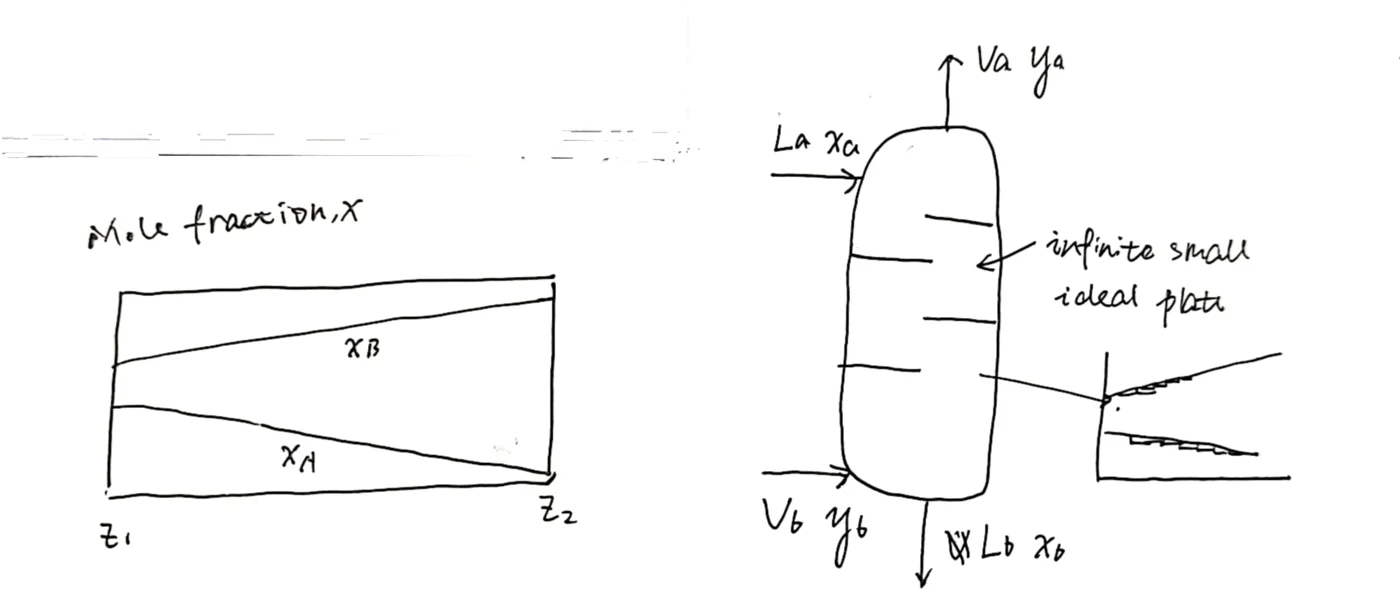 Mole fraction, x
xB
xA
z1
z2
Va ya
La xa
infinite small
ideal plate
Vb yb
Lb xb